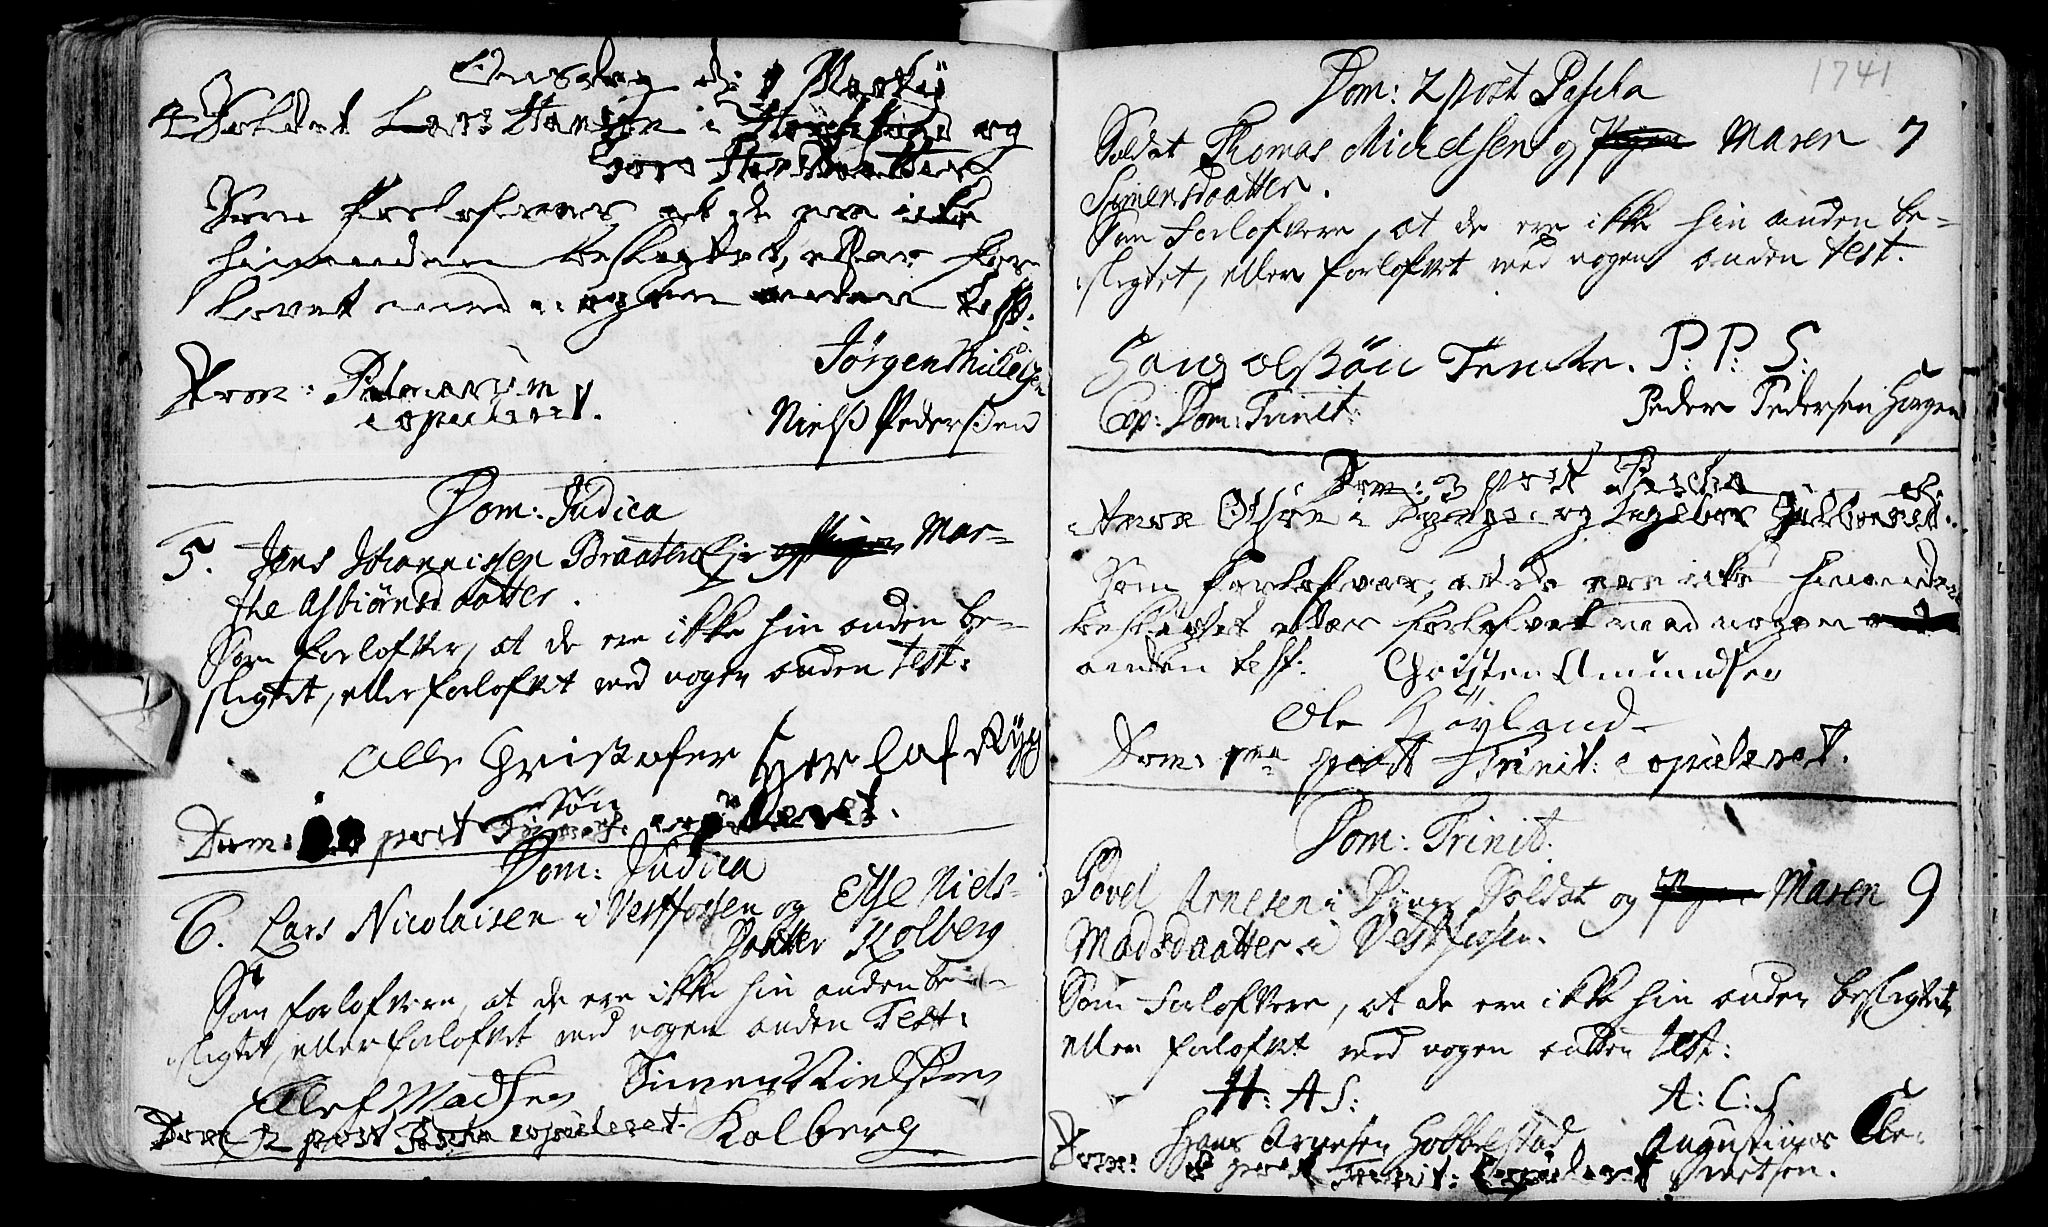 Onsdag d: 1 Martij
4 Soldat Lars Hansen i og
Som forlofvere, at de ere icke
hinanden beslegtet, eller for-
lovet med nogen anden test:
Jørgen Mickelsen
Dom: Palmarum
copuleret.
Nielß Pederßen
Dom: Judica
5. Jens Johannissen Braaten Eje Mar-
the Asbiørnsdaatter.
Som forlofver, at de ere ikke hin anden be-
slegtet, eller forlofvet med nogen anden test:
Olle Christofer
søn
Dom: post copuleret.
Dom: Judica
6. Lars Nicolaisen i Vestfossen og Else Niels-
Daatter Kolberg
Som forlofvere, at de ere ikke hin anden be-
slegtet, eller forlofvet med nogen anden Test:
Olef Madsen Simen Nielsøn
Dom 2 post Pascha copuleret. Kolberg
1741
Dom: 2 post Pascha
Soldat Thomas Michelsen og Maren 7
Simensdaatter.
Som forlofvere, at de ere ikke hin anden be-
slegtet, eller forlofvet med nogen anden test.
Hans olßøn Tencke. P: P: S:
Cop: Dom: Trinit: Peder Pedersen Horgen
Dom: 3 post Pascha
8.
Som forlofver, at de ere icke hinanden
beslegtet eller forlofvet med nogen
anden test: Christen Amundsen
Ole Høyland
Dom: 1ma post Trinit: copuleret.
Dom: Trinit:
Povel Arnesen i Soldat og Maren 9
Madsdaatter i Vestfossen.
Som forlofvere, at de ere ikke hin anden beslegtet
eller forlofvet med nogen anden test:
H: A S: A: C: S
Hans Arnesen Hobbelstad Augustinus Cle-
Dom: post Trinit: Copuleret metsen.